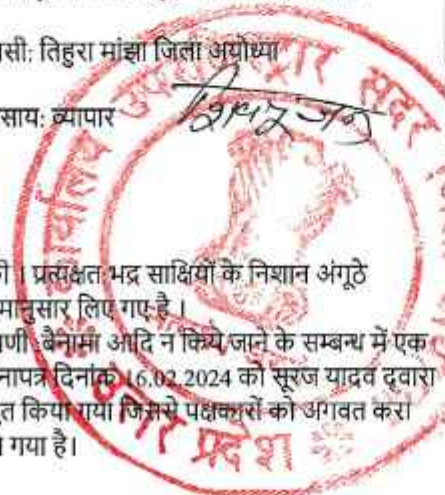 सी: तिहुरा मांझा जिला अयोध्या
साय: व्यापार
की । प्रत्यक्षतः भद्र साक्षियों के निशान अंगूठे
मानुसार लिए गए है ।
पणी :बैनामा आदि न किये जाने के सम्बन्ध में एक
नापत्र दिनांक 16.02.2024 को सूरज यादव द्वारा
तुत किया गया जिससे पक्षकारों को अगवत करा
ा गया है।
कार्यालय उपनिबन्धक सदर
उत्तर प्रदेश